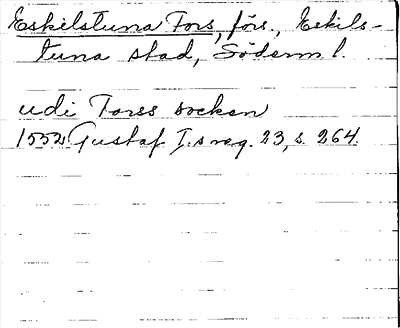 Eskilstuna Fors, förs., Eskils-
tuna stad, Söderm l.
udi Forss socken
1552 Gustaf I.s reg. 23, s. 264.